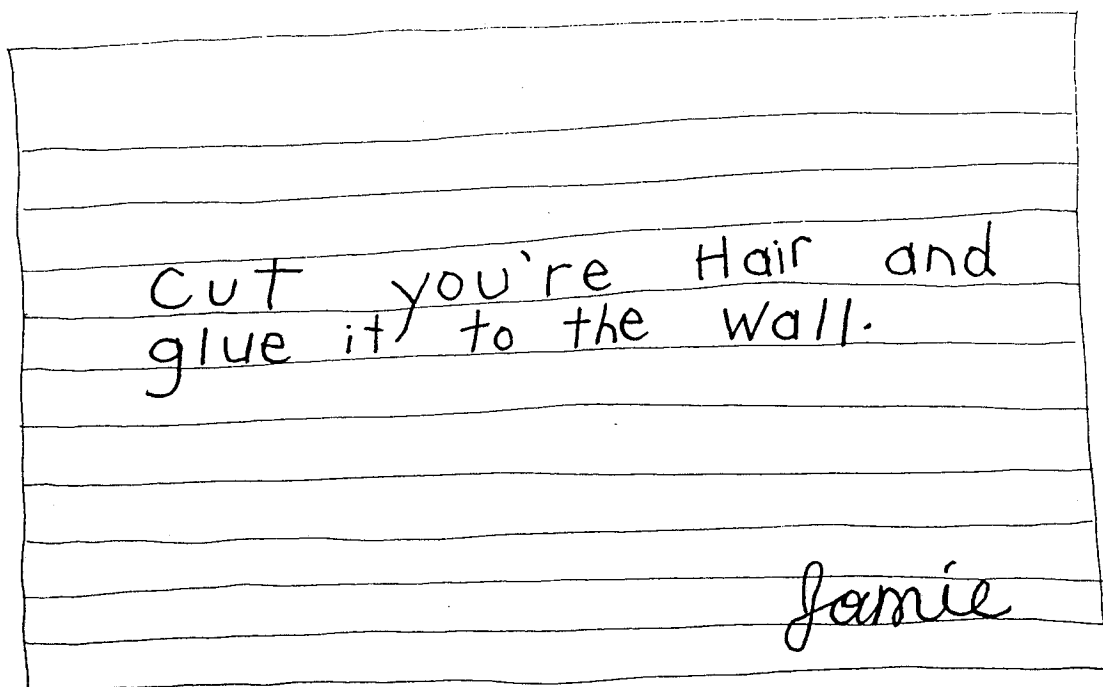 Cut you're Hair and
glue it to the wall.
Jamie